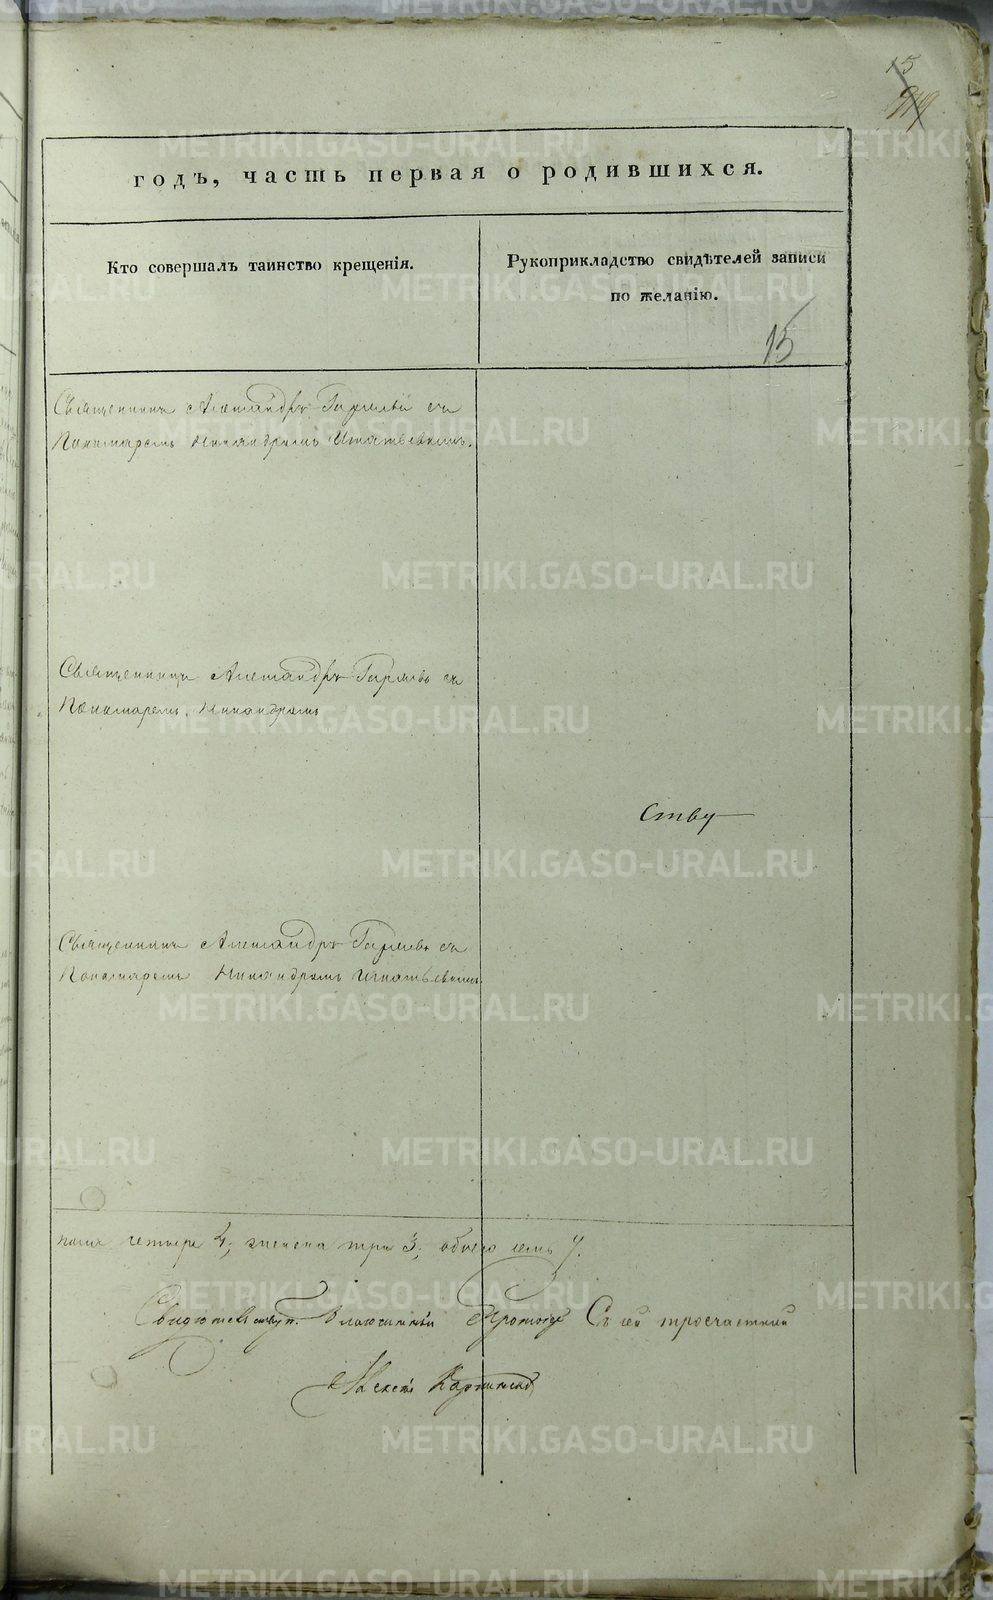 15
годъ, часть первая о родившихся.
Кто совершалъ таинство крещенія.
Рукоприкладство свидѣтелей записи
по желанію.
15
Священникъ Александръ съ
Пономаремъ Никандромъ Игнатьевымъ.
Священникъ Александръ съ
Пономаремъ Никандромъ
ству
Священникъ Александръ съ
Пономаремъ Никандромъ Игнатьевымъ
четыре 4; женска три 3; обоего семь 7.
Свидѣтельствуетъ
Алексѣй
METRIKI.GASO-URAL.RU